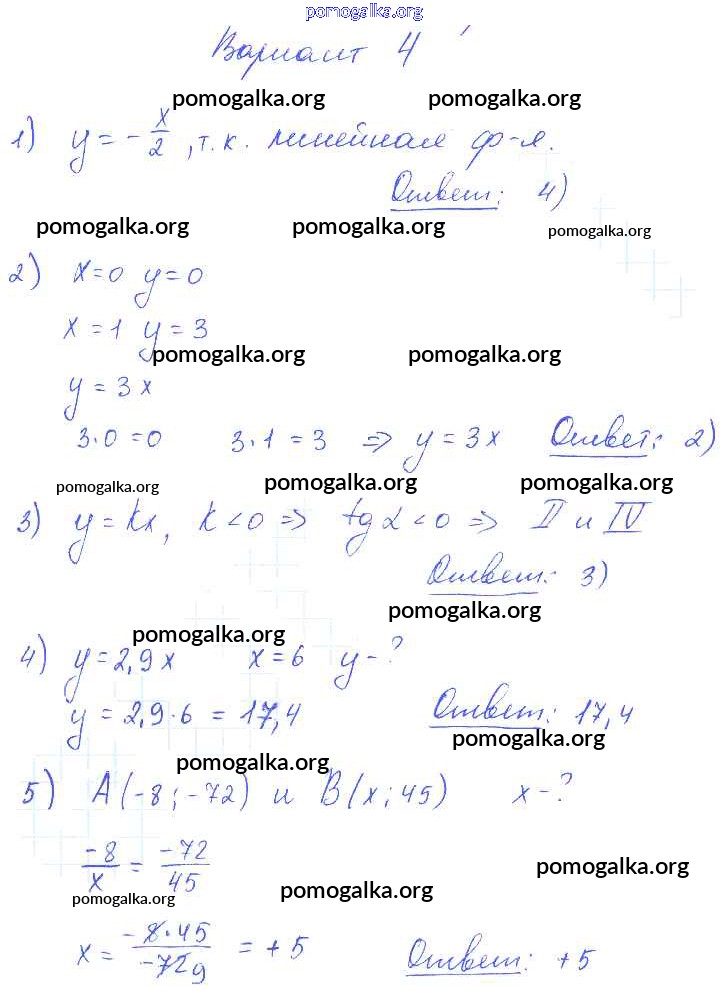 pomogalka.org
Вариант 4
pomogalka.org pomogalka.org
1) y = -x/2, т.к. линейная ф-я.
Ответ: 4)
pomogalka.org pomogalka.org pomogalka.org
2) x=0 y=0
x=1 y=3
pomogalka.org pomogalka.org
y=3x
3·0=0 3·1=3 => y=3x Ответ: 2)
pomogalka.org pomogalka.org pomogalka.org
3) y=kx, k<0 => tg α<0 => II и IV
Ответ: 3)
pomogalka.org
pomogalka.org
4) y=2,9x x=6 y-?
y=2,9·6=17,4 Ответ: 17,4
pomogalka.org
pomogalka.org
5) A(-8;-72) и B(x;45) x-?
-8/x = -72/45
pomogalka.org pomogalka.org pomogalka.org
x = -8·45/-72 9 = +5 Ответ: +5